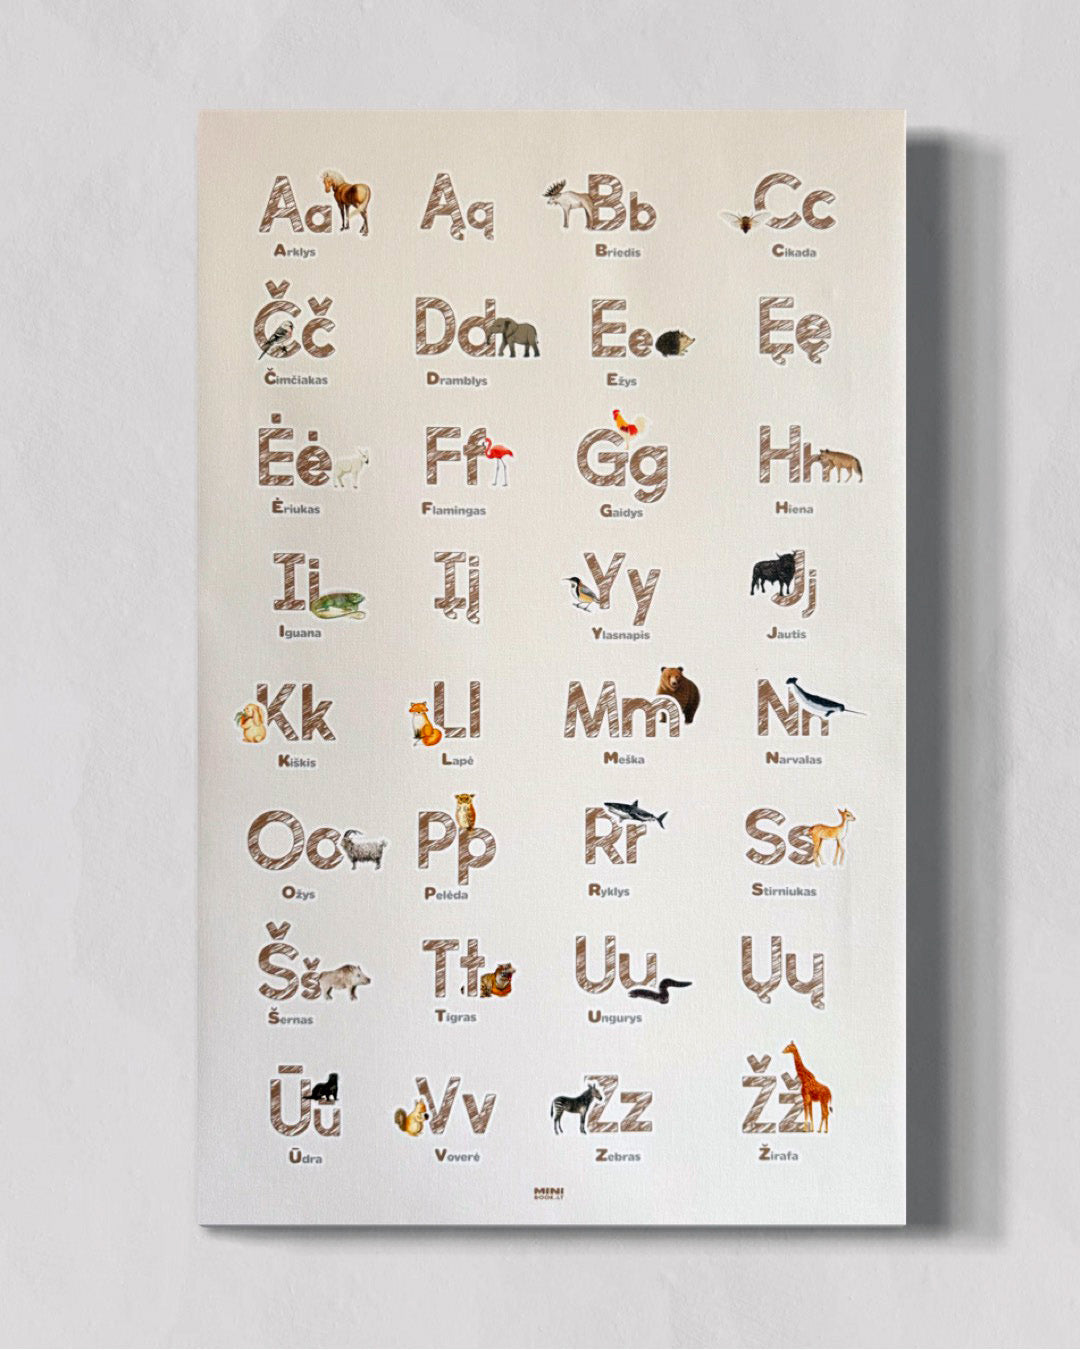 Aa Ąą Bb Cc
Arklys Briedis Cikada
Čč Dd Ee Ęę
Čimčiakas Dramblys Ežys
Ėė Ff Gg Hh
Ėriukas Flamingas Gaidys Hiena
Ii Įį Yy Jj
Iguana Ylasnapis Jautis
Kk Ll Mm Nn
Kiškis Lapė Meška Narvalas
Oo Pp Rr Ss
Ožys Pelėda Ryklys Stirniukas
Šš Tt Uu Ųų
Šernas Tigras Ungurys
Ūū Vv Zz Žž
Ūdra Voverė Zebras Žirafa
MINI
BOOK.LT